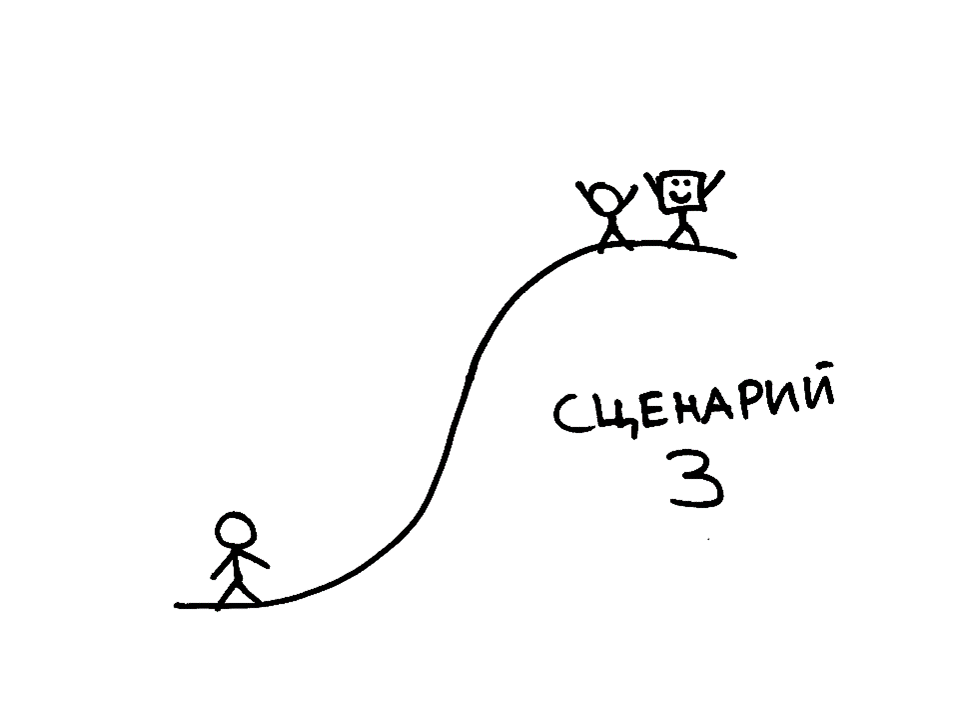 СЦЕНАРИЙ
3